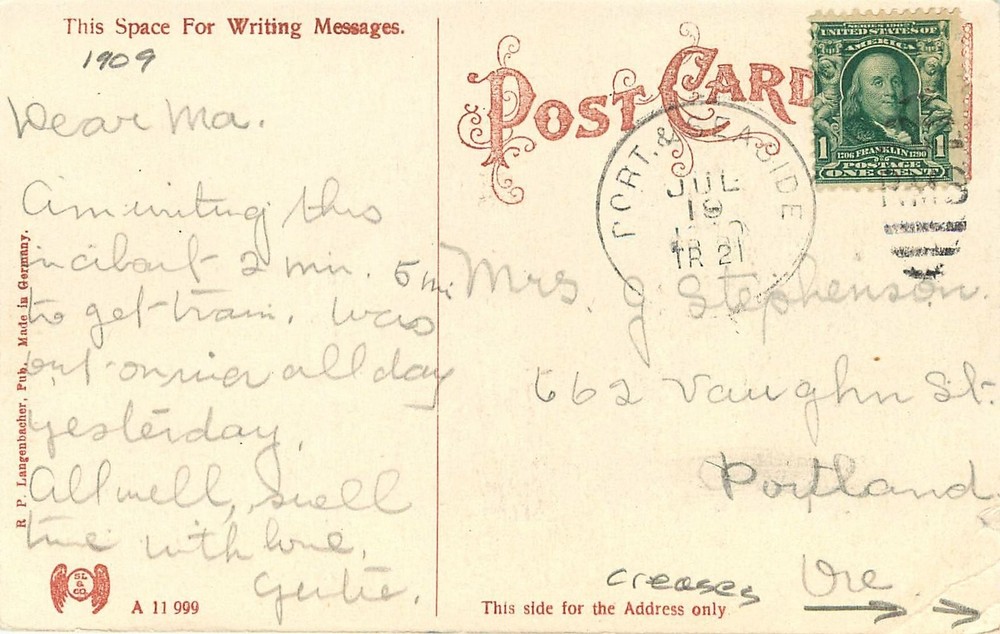 This Space For Writing Messages.
1909
Dear Ma.
Am writing this
in about 2 min. 5 mi
to get train. Was
out on river all day
yesterday.
All well, swell
time with love,
Gertie.
R. P. Langenbacher, Pub. Made in Germany.
SL & CO.
A 11 999
POST CARD
SERIES 1902
UNITED STATES OF
AMERICA
1 1706 FRANKLIN 1790 1
POSTAGE
ONE CENT
PORT. & SEASIDE
JUL
19
TR 21
RMS
Mrs. J. Stephenson.
662 Vaughn St.
Portland
Ore
creases
This side for the Address only